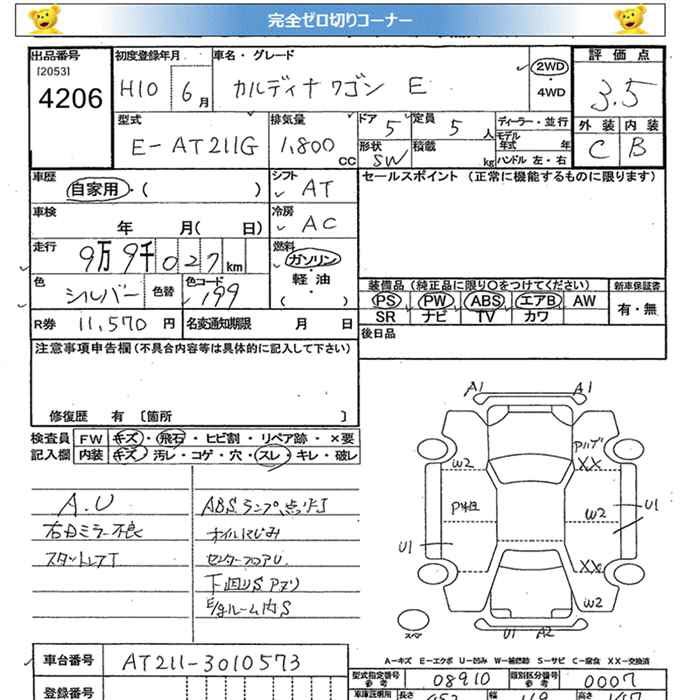 完全ゼロ切りコーナー
出品番号
[2053]
4206
初度登録年月
H10 6月
車名・グレード
カルディナ ワゴン E
2WD
・
4WD
評価点
3.5
外装 内装
C B
型式
E-AT211G
排気量
1,800 cc
ドア 5
定員 5 人
形状 SW
積載 kg
ディーラー・並行
モデル年式 年
ハンドル 左・右
車歴
自家用・( )
シフト
AT
車検
年 月( 日)
冷房
AC
走行
9万9千027km
燃料
ガソリン
・
軽油
( )
色
シルバー
色替
色コード
199
R券 11,570 円
名変通知期限 月 日
セールスポイント (正常に機能するものに限ります)
装備品 (純正品に限り○をつけてください)
PS PW ABS エアB AW
SR ナビ TV カワ
新車保証書
有・無
後日品
注意事項申告欄(不具合内容等は具体的に記入して下さい)
修復歴 有 〔箇所 〕
検査員記入欄
FW キズ・飛石・ヒビ割・リペア跡・×要
内装 キズ・汚レ・コゲ・穴・スレ・キレ・破レ
A.U
右Dミラー不良
スタットレスT
ABSランプ点灯
オイルにじみ
センターフロアU
下回りS Pスリ
E/gルーム内S
A1 A1
Pハゲ
W2 XX
P補 W2 U1
U1
XX
W2
スペア
U1 A2
A-キズ E-エクボ U-凹み W-補修跡 S-サビ C-腐食 XX-交換済
車台番号 AT211-3010573
登録番号
型式指定番号参考 08910
類別区分番号参考 0007
車庫証明用 長さ 幅 高さ